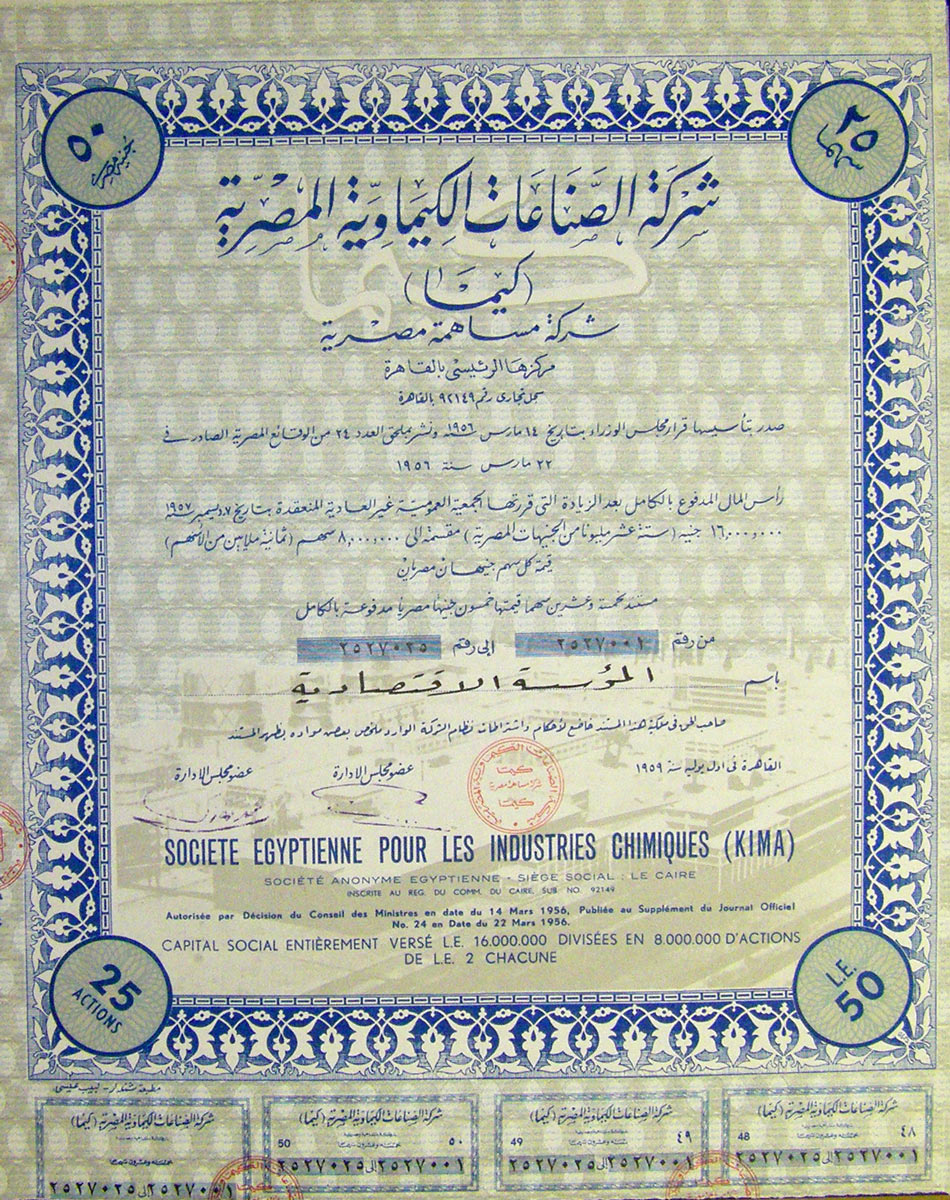 ٥٠
جنيه مصرى
٢٥
سهما
شركة الصناعات الكيماوية المصرية
(كيما)
شركة مساهمة مصرية
مركزها الرئيسى بالقاهرة
سجل تجارى رقم ٩٢١٤٩ بالقاهرة
صدر بتأسيسها قرار مجلس الوزراء بتاريخ ١٤ مارس سنة ١٩٥٦ ونشر بملحق العدد ٢٤ من الوقائع المصرية الصادر فى
٢٢ مارس سنة ١٩٥٦
رأس المال المدفوع بالكامل بعد الزيادة التى قررتها الجمعية العمومية غير العادية المنعقدة بتاريخ ٧ ديسمبر سنة ١٩٥٧
١٦,٠٠٠,٠٠٠ جنيه (ستة عشر مليونا من الجنيهات المصرية) مقسمة إلى ٨,٠٠٠,٠٠٠ سهم (ثمانية ملايين من الأسهم)
قيمة كل سهم جنيهان مصريان
مستند بخمسة وعشرين سهما قيمتها خمسون جنيها مصريا مدفوعة بالكامل
من رقم ٢٥٢٧٠٠١ إلى رقم ٢٥٢٧٠٢٥
باسم المؤسسة الاقتصادية
صاحب الحق فى ملكية هذا المستند خاضع لأحكام واشتراطات نظام الشركة الوارد ملخص بعض مواده بظهر المستند
القاهرة فى اول يوليه سنة ١٩٥٩
عضو مجلس الادارة
عضو مجلس الادارة
كيما
شركة مساهمة مصرية
كيما
SOCIETE EGYPTIENNE POUR LES INDUSTRIES CHIMIQUES (KIMA)
SOCIÉTÉ ANONYME EGYPTIENNE - SIÈGE SOCIAL : LE CAIRE
INSCRITE AU REG. DU COMM. DU CAIRE SUB NO. 92149
Autorisée par Décision du Conseil des Ministres en date du 14 Mars 1956, Publiée au Supplément du Journal Officiel
No. 24 en Date du 22 Mars 1956.
CAPITAL SOCIAL ENTIÈREMENT VERSÉ L.E. 16.000.000 DIVISÉES EN 8.000.000 D'ACTIONS
DE L.E. 2 CHACUNE
25
ACTIONS
L.E.
50
شركة الصناعات الكيماوية المصرية (كيما)
48 ٤٨
٢٥٢٧٠٠١ إلى ٢٥٢٧٠٢٥
شركة الصناعات الكيماوية المصرية (كيما)
49 ٤٩
٢٥٢٧٠٠١ إلى ٢٥٢٧٠٢٥
شركة الصناعات الكيماوية المصرية (كيما)
50 ٥٠
٢٥٢٧٠٠١ إلى ٢٥٢٧٠٢٥
شركة الصناعات الكيماوية المصرية (كيما)
٢٥٢٧٠٠١ إلى ٢٥٢٧٠٢٥